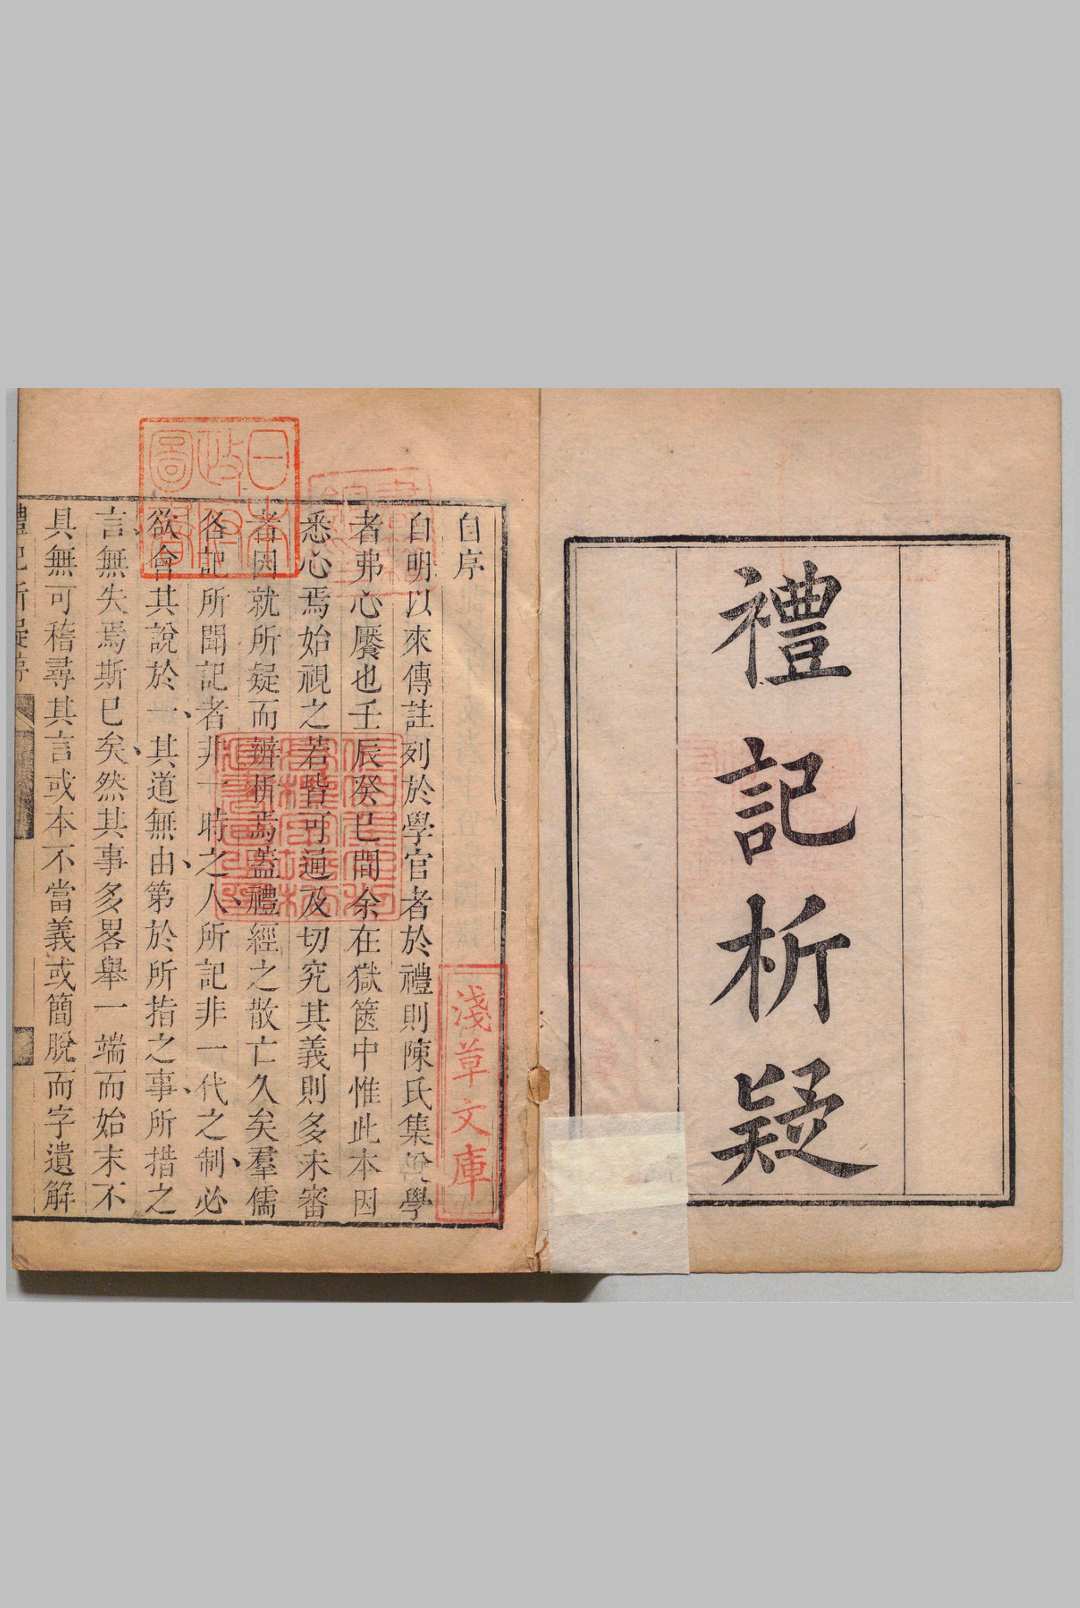 禮記析疑
自序
自明以來傳註列於學官者於禮則陳氏集說學
者弗心饜也壬辰癸巳間余在獄篋中惟此本因
悉心焉始視之若皆可通及切究其義則多未審
者因就所疑而辨析焉蓋禮經之散亡久矣羣儒
各記所聞記者非一時之人所記非一代之制必
欲會其說於一其道無由第於所指之事所措之
言無失焉斯已矣然其事多畧舉一端而始末不
具無可稽尋其言或本不當義或簡脫而字遺解
禮記析疑序
淺草文庫
日本政府圖書